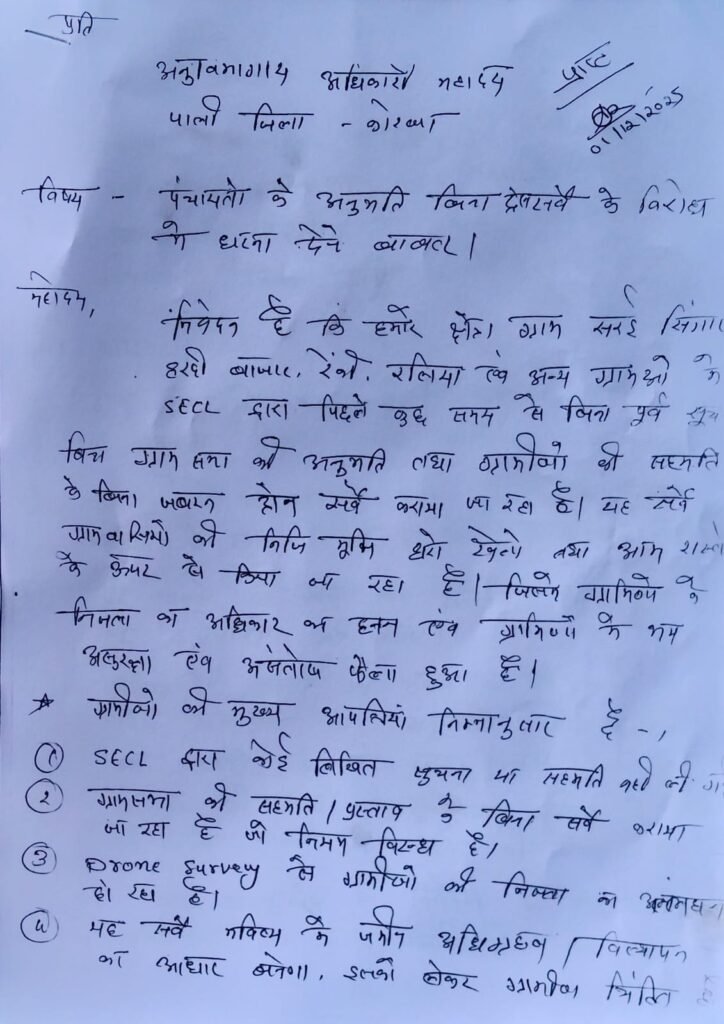 प्रति
अनुविभागीय अधिकारी महोदय
पाली जिला - कोरबा
प्राप्त
01/12/2025
विषय - पंचायतो के अनुमति बिना ड्रोनसर्वे के विरोध
मे धरना देने बाबत।
महोदय,
निवेदन है कि हमारे क्षेत्र ग्राम सरई सिंगार
हरदी बाजार, रेंकी, रलिया एवं अन्य ग्रामओ मे
SECL द्वारा पिछले कुछ समय से बिना पूर्व
बिना ग्राम सभा की अनुमति तथा ग्रामीणो की सहमति
के बिना जबरन ड्रोन सर्वे कराया जा रहा है। यह सर्वे
ग्रामवासियो की निजि भूमि घरो खेतो तथा आम रास्ते
के ऊपर से किया जा रहा है। जिससे ग्रामिणो के
निजता का अधिकार का हनन एंव ग्रामिणो मे भय
असुरक्षा एंव असंतोष फैला हुआ है।
* ग्रामीणो की मुख्य आपत्तियां निम्नानुसार है -,
① SECL द्वारा कोई लिखित सुचना या सहमति नही ली
② ग्रामसभा की सहमति / प्रस्ताव के बिना सर्वे कराया
जा रहा है जो नियम विरूध्द है।
③ Drone Survey से ग्रामीणो की निजता का
हो रहा है।
④ यह सर्वे भविष्य मे जमीन अधिग्रहण / विस्थापन
का आधार बनेगा, इसको लेकर ग्रामीण चिंतित